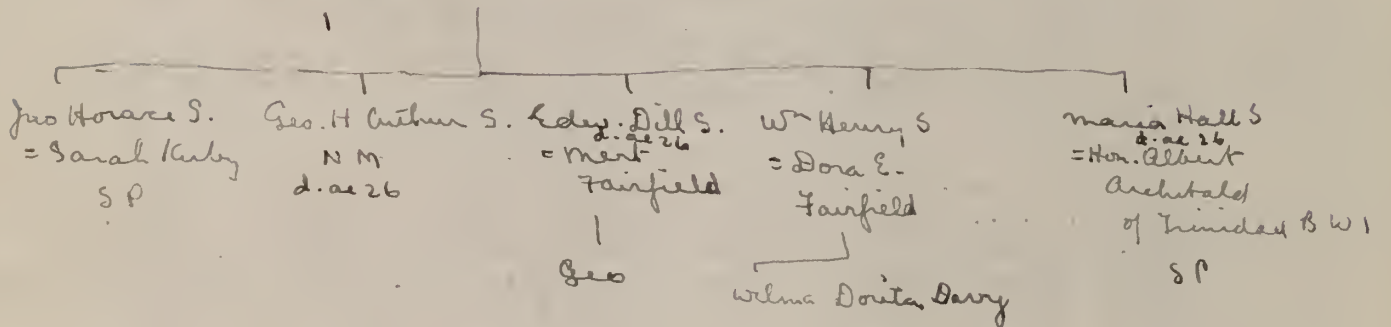 Jno Horace S.
= Sarah Kirby
S P
Geo. H Arthur S.
N M
d. ae 26
Edw. Dill S.
d. ae 26
= Mert
Fairfield
Geo
Wm Henry S
= Dora E.
Fairfield
Wilma Dorita Davy
Maria Hall S
d. ae 26
= Hon. Albert
Archibald
of Trinidad B W I
S P